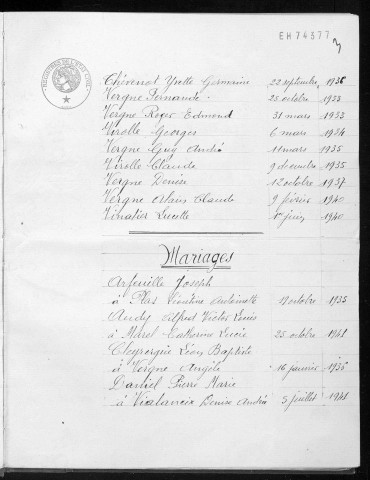 EH74377
Thévenot Yvette Germaine 22 septembre 1936
Vergne Fernande 25 octobre 1933
Vergne Roger Edmond 31 mars 1933
Virolle Georges 6 mars 1934
Vergne Guy André 11 mars 1935
Virolle Claude 9 décembre 1935
Vergne Denise 12 octobre 1937
Vergne Alain Claude 9 février 1940
Vinatier Lucette 1940
Mariages
Arfeuille Joseph
à Plas Léontine Antoinette 19 octobre 1935
Audy Alfred Victor Louis
à Maret Catherine Lucie 25 octobre 1941
Peyrergne Léon Baptiste
à Vergne Angèle 16 janvier 1935
Daniel Pierre Marie
à Vialaneix Denise Andrée 5 juillet 1941